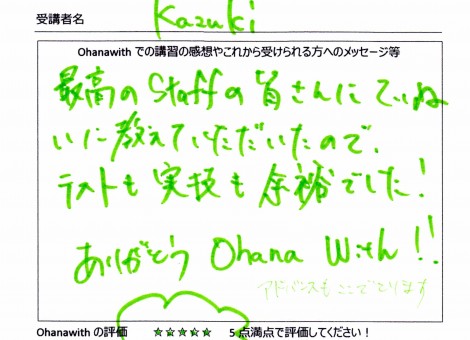 受講者名 Kazuki
Ohanawith での講習の感想やこれから受けられる方へのメッセージ等
最高の Staff の皆さんにていね
いに教えていただいたので、
テストも実技も余裕でした!
ありがとう Ohana With!!
アドバンスもここでとります
Ohanawith の評価 ☆☆☆☆☆ 5点満点で評価してください!